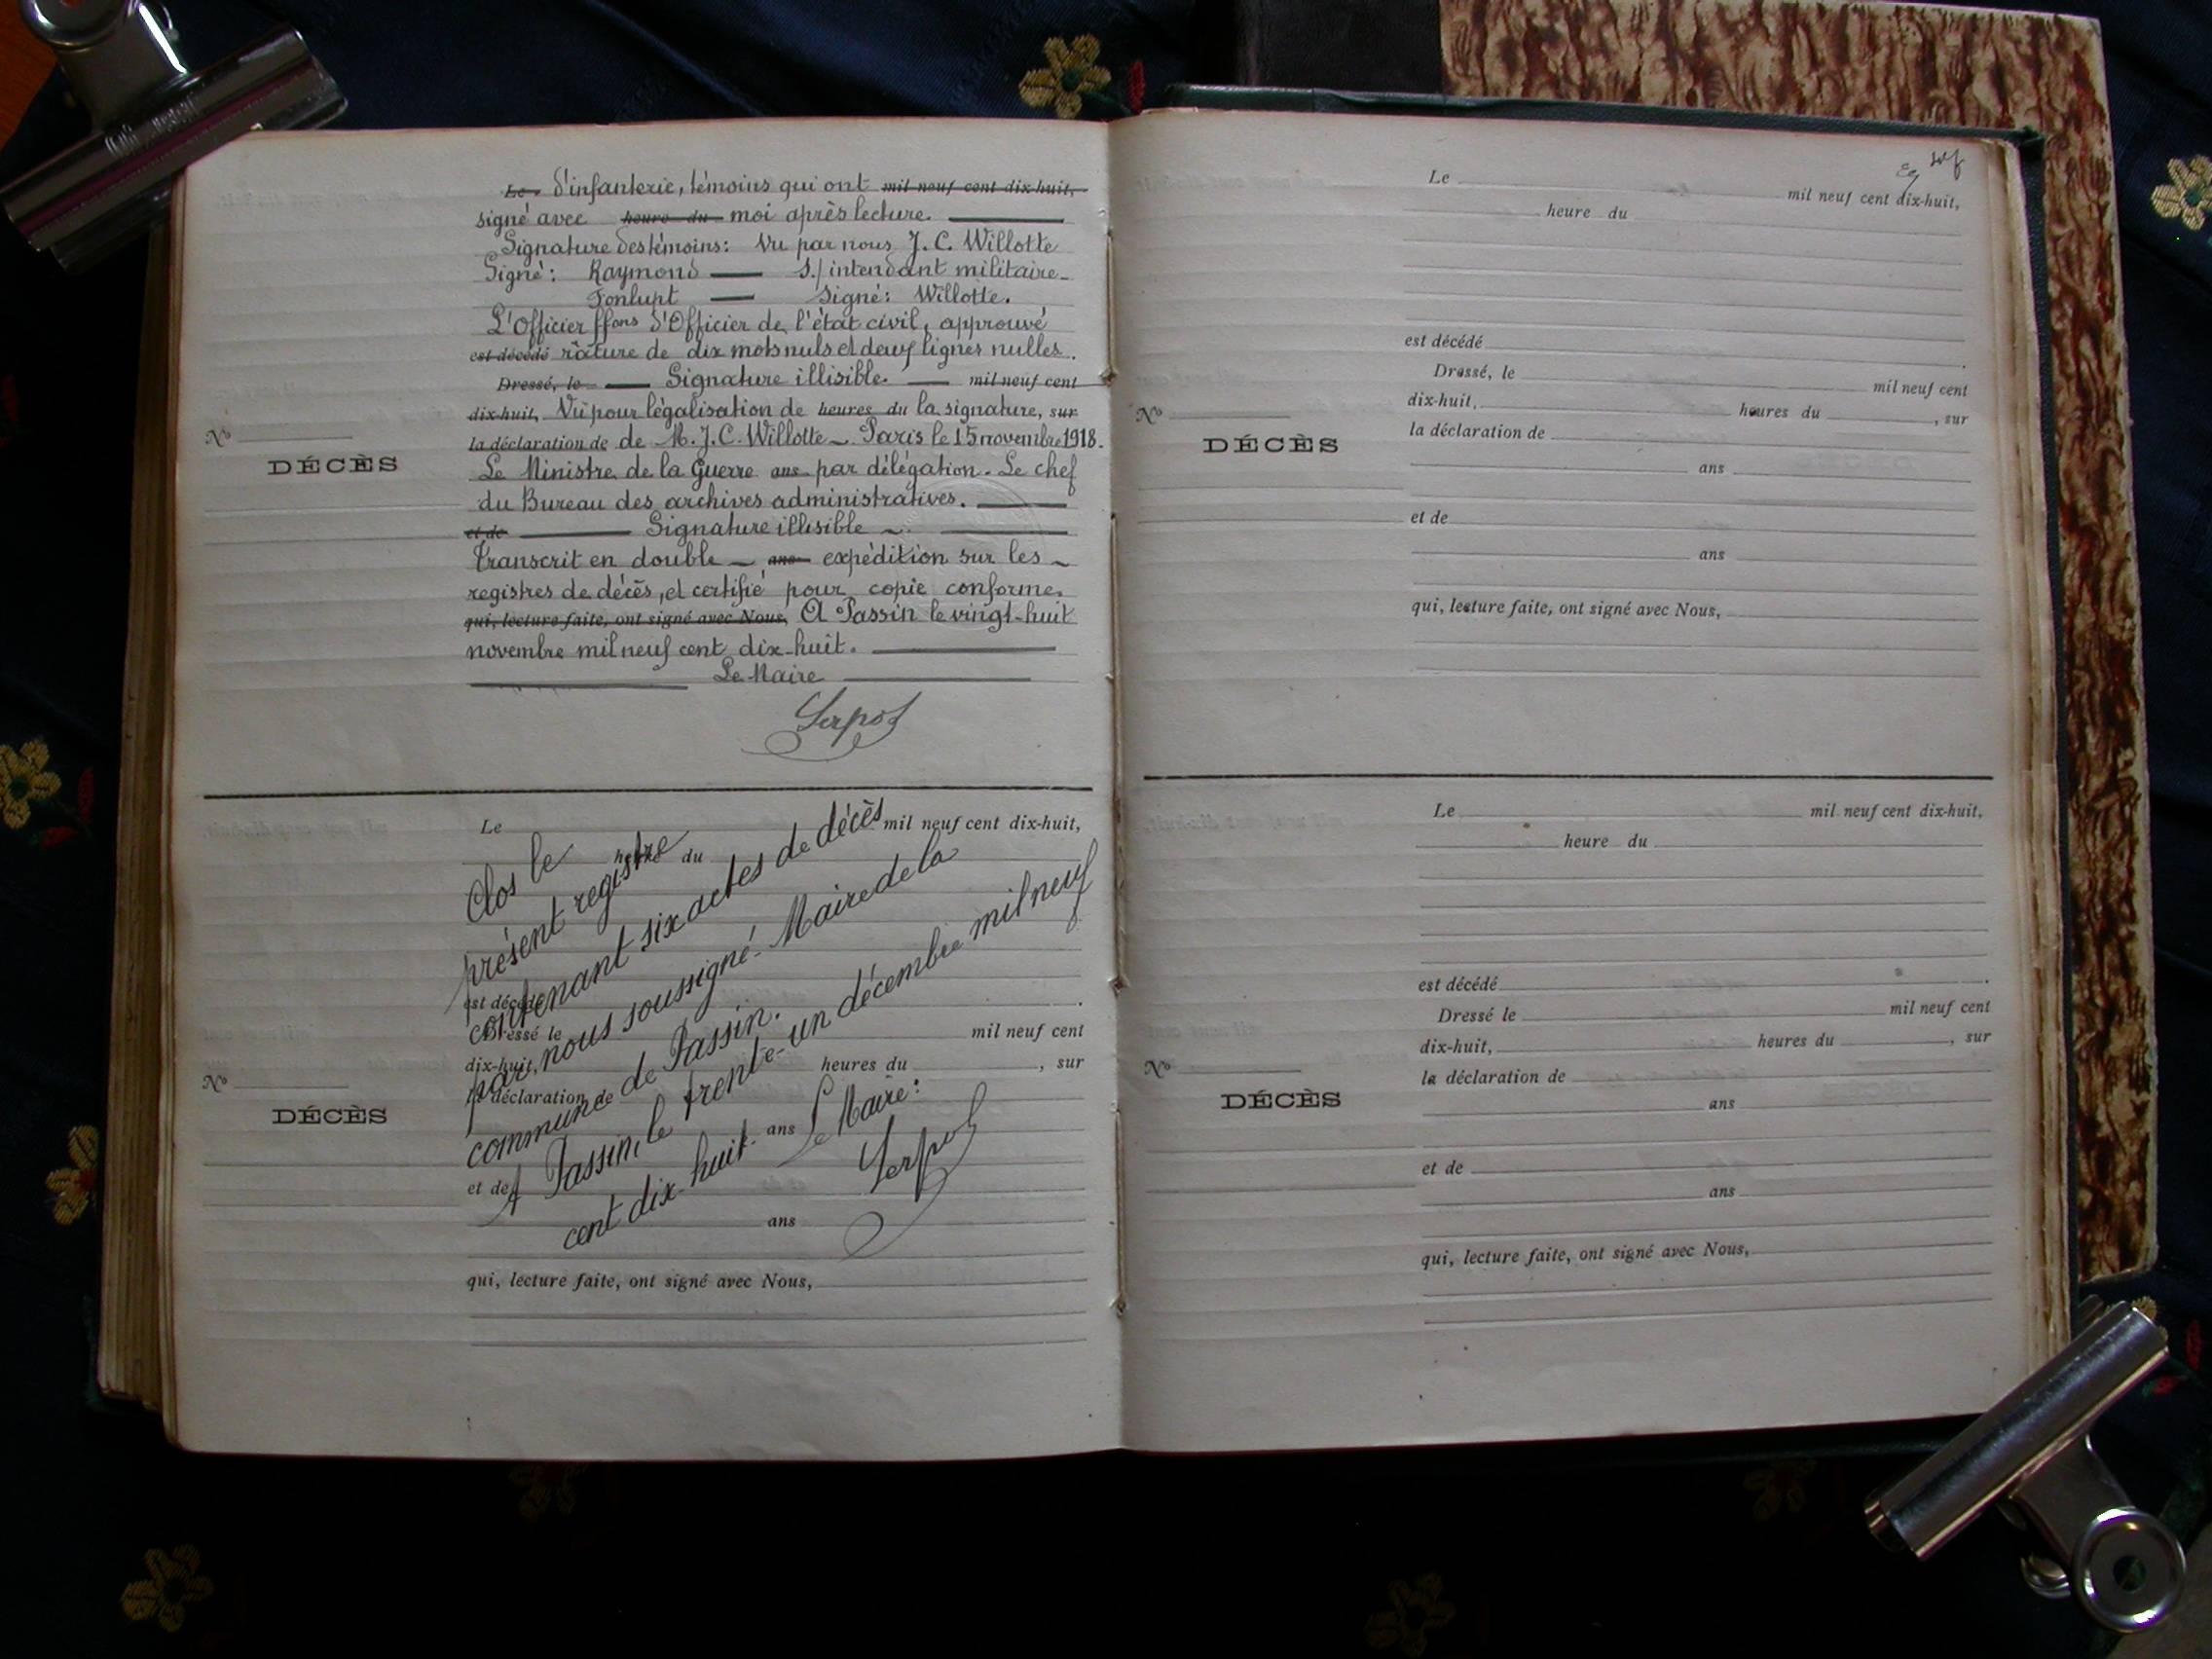 Le d'infanterie, témoins qui ont mil neuf cent dix-huit,
signé avec heure du moi après lecture.
Signature des témoins: Vu par nous J. C. Willotte
Signé: Raymond S/ intendant militaire
Fonlupt Signé: Willotte.
L'Officier ffons d'Officier de l'état civil, approuvé
est décédé râture de dix mots nuls et deux lignes nulles.
Dressé, le Signature illisible. mil neuf cent
dix-huit, Vu pour légalisation de heures du la signature, sur
la déclaration de de M. J. C. Willotte Paris le 15 novembre 1918.
Le Ministre de la Guerre ans par délégation. Le chef
du Bureau des archives administratives.
et de Signature illisible
Transcrit en double ans expédition sur les
registres de décès, et certifié pour copie conforme.
qui, lecture faite, ont signé avec Nous, A Passin le vingt-huit
novembre mil neuf cent dix-huit.
Le Maire
Serpol
No
DÉCÈS
Le mil neuf cent dix-huit,
heure du
est décédé .
Dressé le mil neuf cent
dix-huit, heures du , sur
la déclaration de
ans
et de
ans
qui, lecture faite, ont signé avec Nous,
Clos le
présent registre
contenant six actes de décès
par nous soussigné Maire de la
commune de Passin.
A Passin, le trente-un décembre mil neuf
cent dix-huit. Le Maire:
Serpol
No
DÉCÈS
Le mil neuf cent dix-huit,
heure du
est décédé .
Dressé, le mil neuf cent
dix-huit, heures du , sur
la déclaration de
ans
et de
ans
qui, lecture faite, ont signé avec Nous,
No
DÉCÈS
Le mil neuf cent dix-huit,
heure du
est décédé .
Dressé le mil neuf cent
dix-huit, heures du , sur
la déclaration de
ans
et de
ans
qui, lecture faite, ont signé avec Nous,
No
DÉCÈS